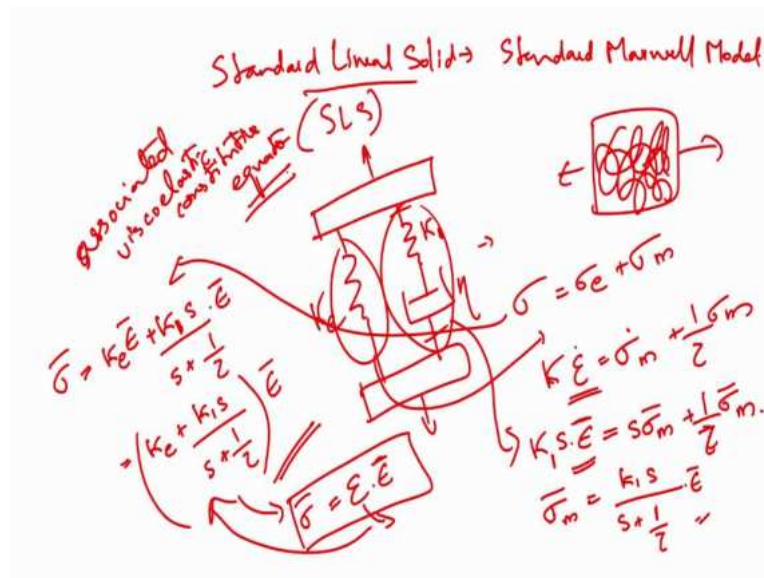 Standard Linear Solid → Standard Maxwell Model
(SLS)
associated
viscoelastic
constitutive
equation
K₁
Kₑ
η
σ = σₑ + σₘ
K ε̇ = σ̇ₘ + 1/τ σₘ
K₁ s · ε̄ = s σ̄ₘ + 1/τ σ̄ₘ.
σ̄ₘ = K₁ s / (s + 1/τ) · ε̄
σ̄ = Kₑ ε̄ + K₁ s / (s + 1/τ) · ε̄
= (Kₑ + K₁ s / (s + 1/τ)) ε̄
σ̄ = ℰ · ε̄